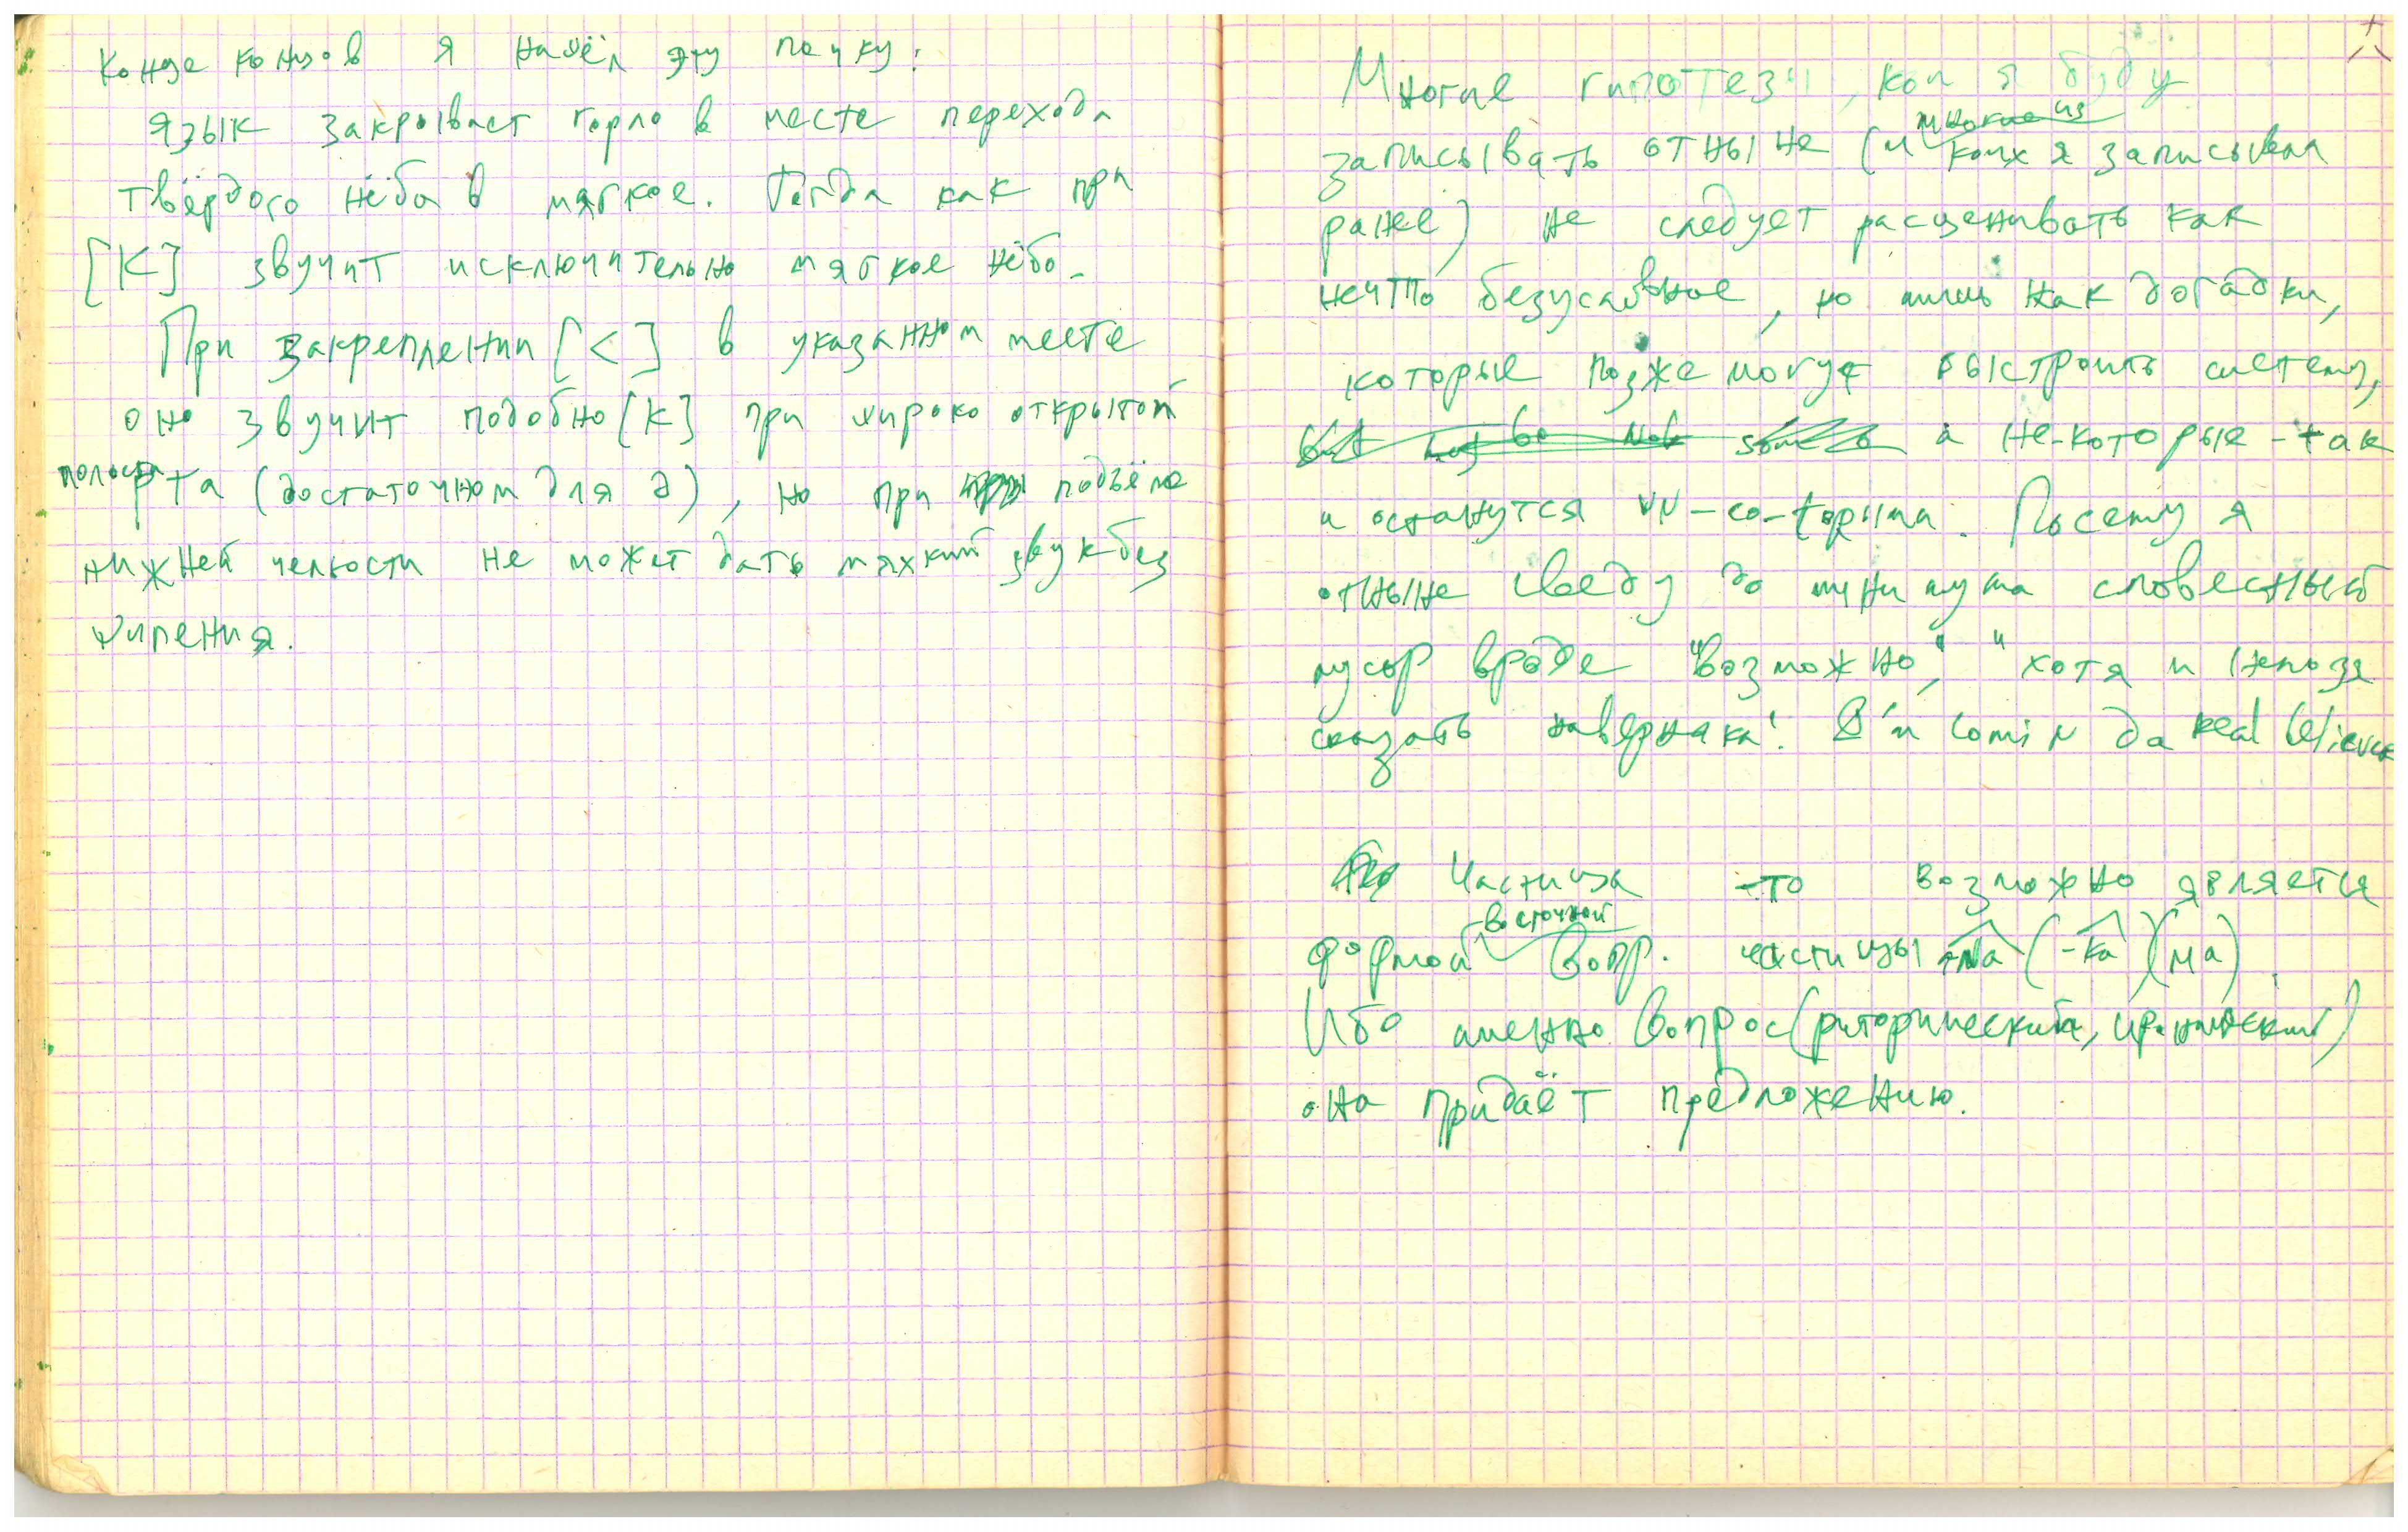 конце концов я нашёл эту почку:
язык закрывает горло в месте перехода
твёрдого нёба в мягкое. Тогда как при
[K] звучит исключительно мягкое нёбо.
При закреплении [<] в указанном месте
оно звучит подобно [K] при широко открытой
полости рта (достаточном для а), но при подъёме
нижней челюсти не может дать мяхкий звук без
шипения.
Многие гипотезы, кои я буду
записывать отныне (и коих я записывал
ранее) не следует расценивать как
нечто безусловное, но лишь как догадки,
которые позже могут выстроить систему,
а не-которые - так
и останутся
Посему я
отныне сведу до минимума словесный
мусор вроде "возможно", "хотя и нельзя
сказать наверняка". I'm comin da real believer
Частица -то возможно является
формой восточной вопр. частицы (-ка) (ма)
Ибо именно вопрос (риторический, иронический)
она придаёт предложению.